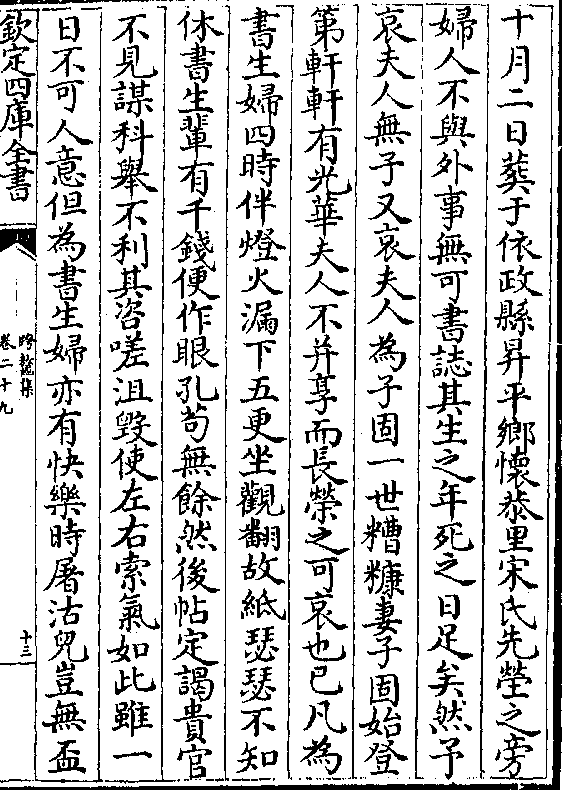 十月二日葬于依政縣昇平鄉懷恭里宋氏先塋之旁
婦人不與外事無可書誌其生之年死之日足矣然予
哀夫人無子又哀夫人為子固一世糟糠妻子固始登
第軒軒有光華夫人不并享而長榮之可哀也已凡為
書生婦四時伴燈火漏下五更坐觀翻故紙瑟瑟不知
休書生輩有千錢便作眼孔茍無餘然後帖定謁貴官
不見謀科舉不利其咨嗟沮毀使左右索氣如此雖一
日不可人意但為書生婦亦有快樂時屠沽兒豈無盃
欽定四庫全書
卷二十九
十三